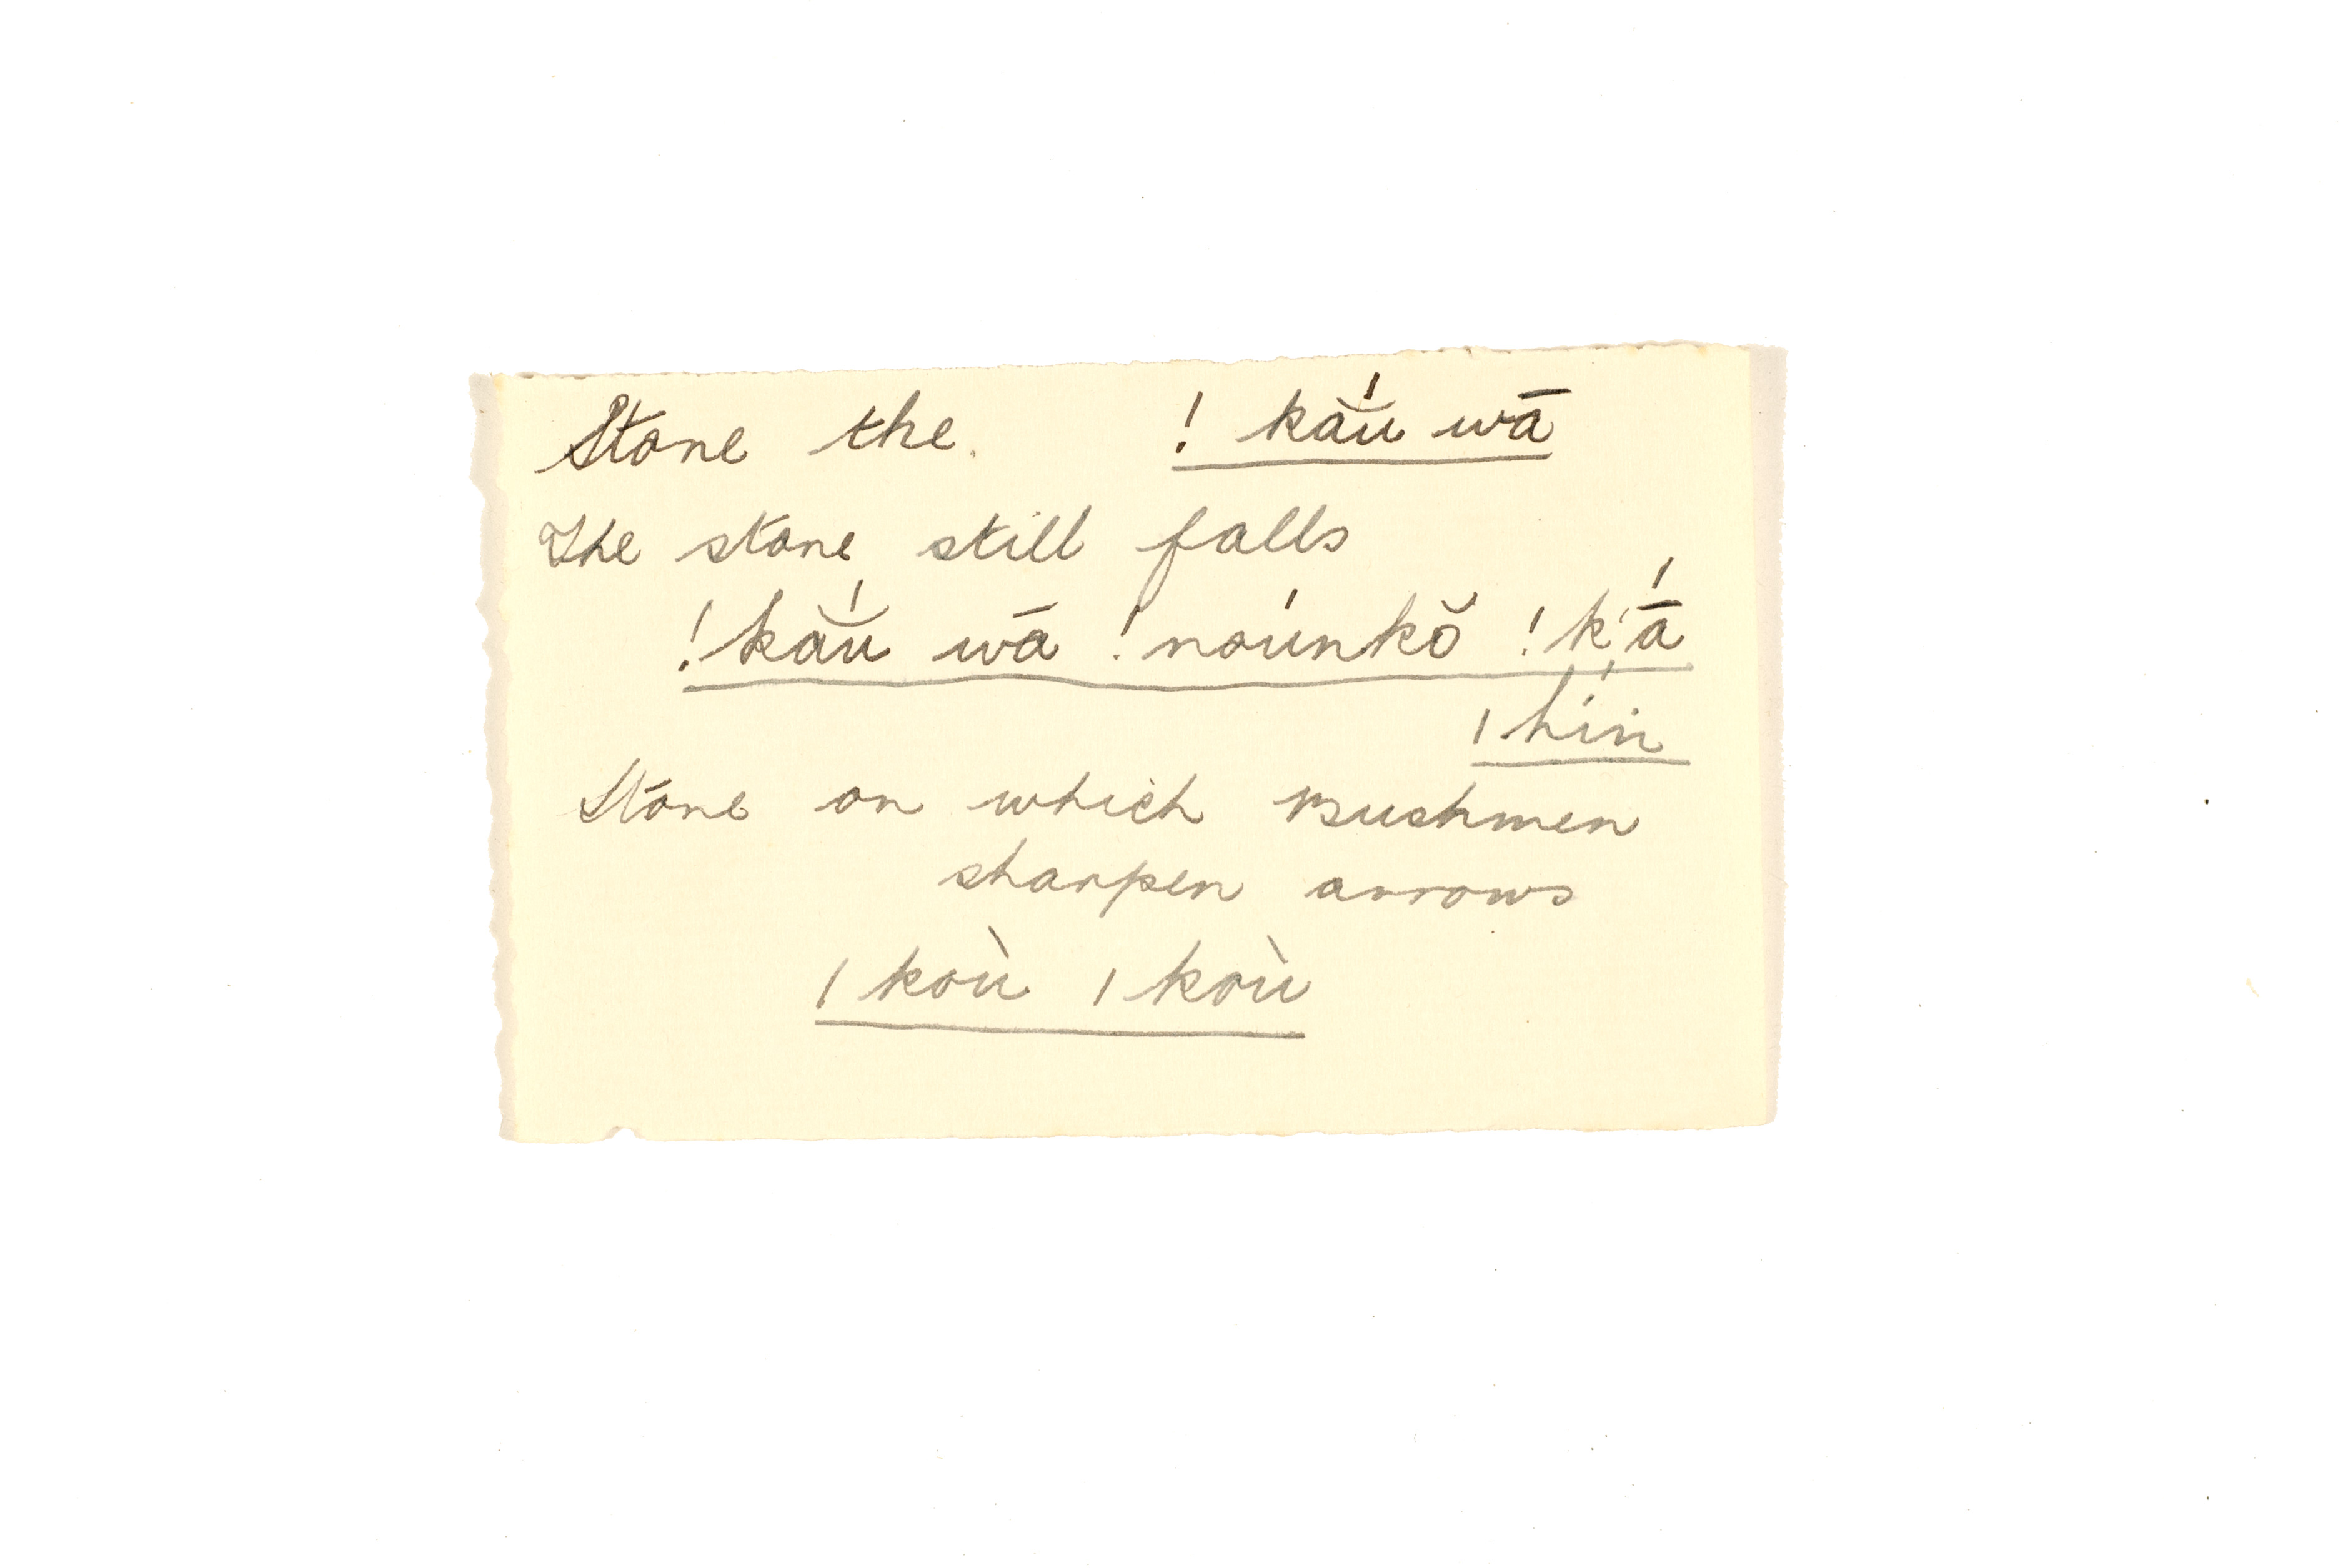 Stone the. ! kắu wā
The stone still falls
! kắu wā ! noúnkŏ ! k'ā́
ǀ hín
Stone on which Bushmen
sharpen arrows
ǀ koù ǀ koù